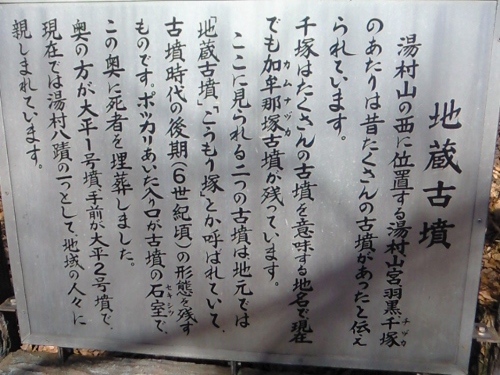 地蔵古墳
湯村山の西に位置する湯村山宮羽黒千塚
チヅカ
のあたりは昔たくさんの古墳があったと伝え
られています。
千塚はたくさんの古墳を意味する地名で現在
カムナヅカ
でも加牟那塚古墳が残っています。
ここに見られる二つの古墳は地元では
「地蔵古墳」「こうもり塚」とか呼ばれていて、
古墳時代の後期(6世紀頃)の形態を残す
ものです。ポッカリあいた入り口が古墳の石室で、
セキシツ
この奥に死者を埋葬しました。
奥の方が大平1号墳、手前が大平2号墳で、
現在では湯村八蹟の一つとして、地域の人々に
親しまれています。